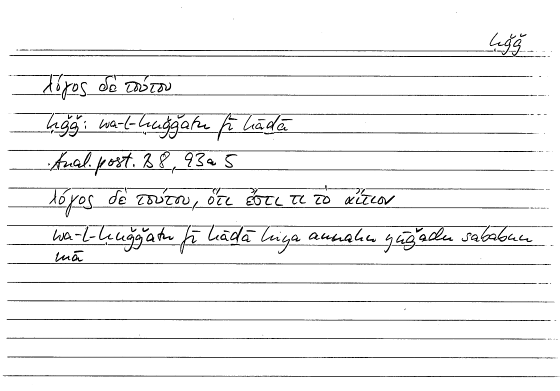 ḥǧǧ
λόγος δὲ τούτου
ḥǧǧ: wa-l-ḥuǧǧatu fī hāḏā
Anal. post. B 8, 93a 5
λόγος δὲ τούτου, ὅτι ἔστι τι τὸ αἴτιον
wa-l-ḥuǧǧatu fī hāḏā hiya annahu yūǧadu sababun
mā